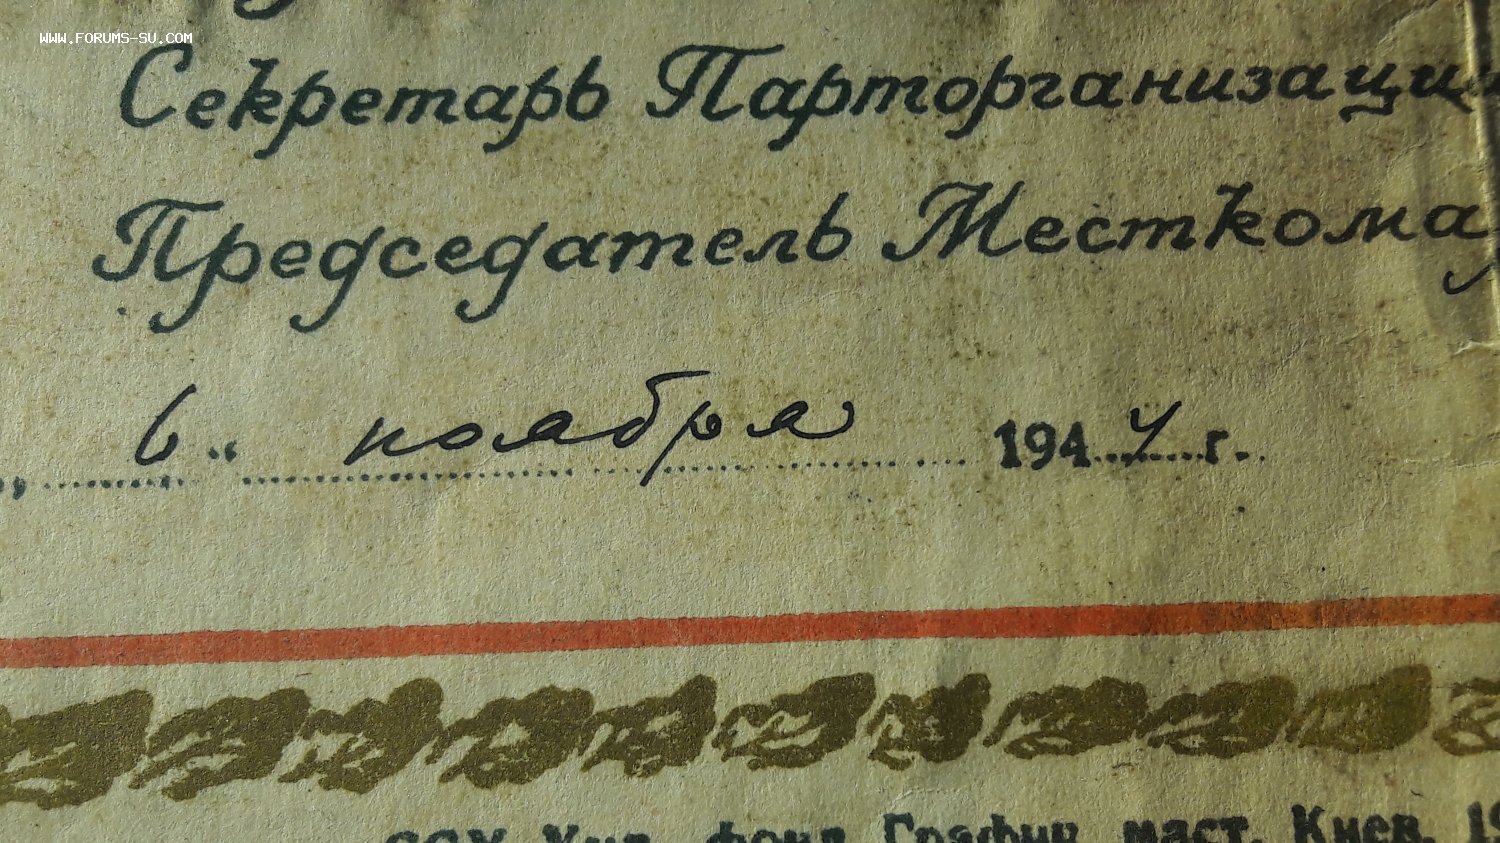 WWW.FORUMS-SU.COM
Секретарь Парторганизаци
Председатель Месткома
„ 6 “ ноября 1944 г.
ССУ Худ. фонд Графич. маст. Киев, 19